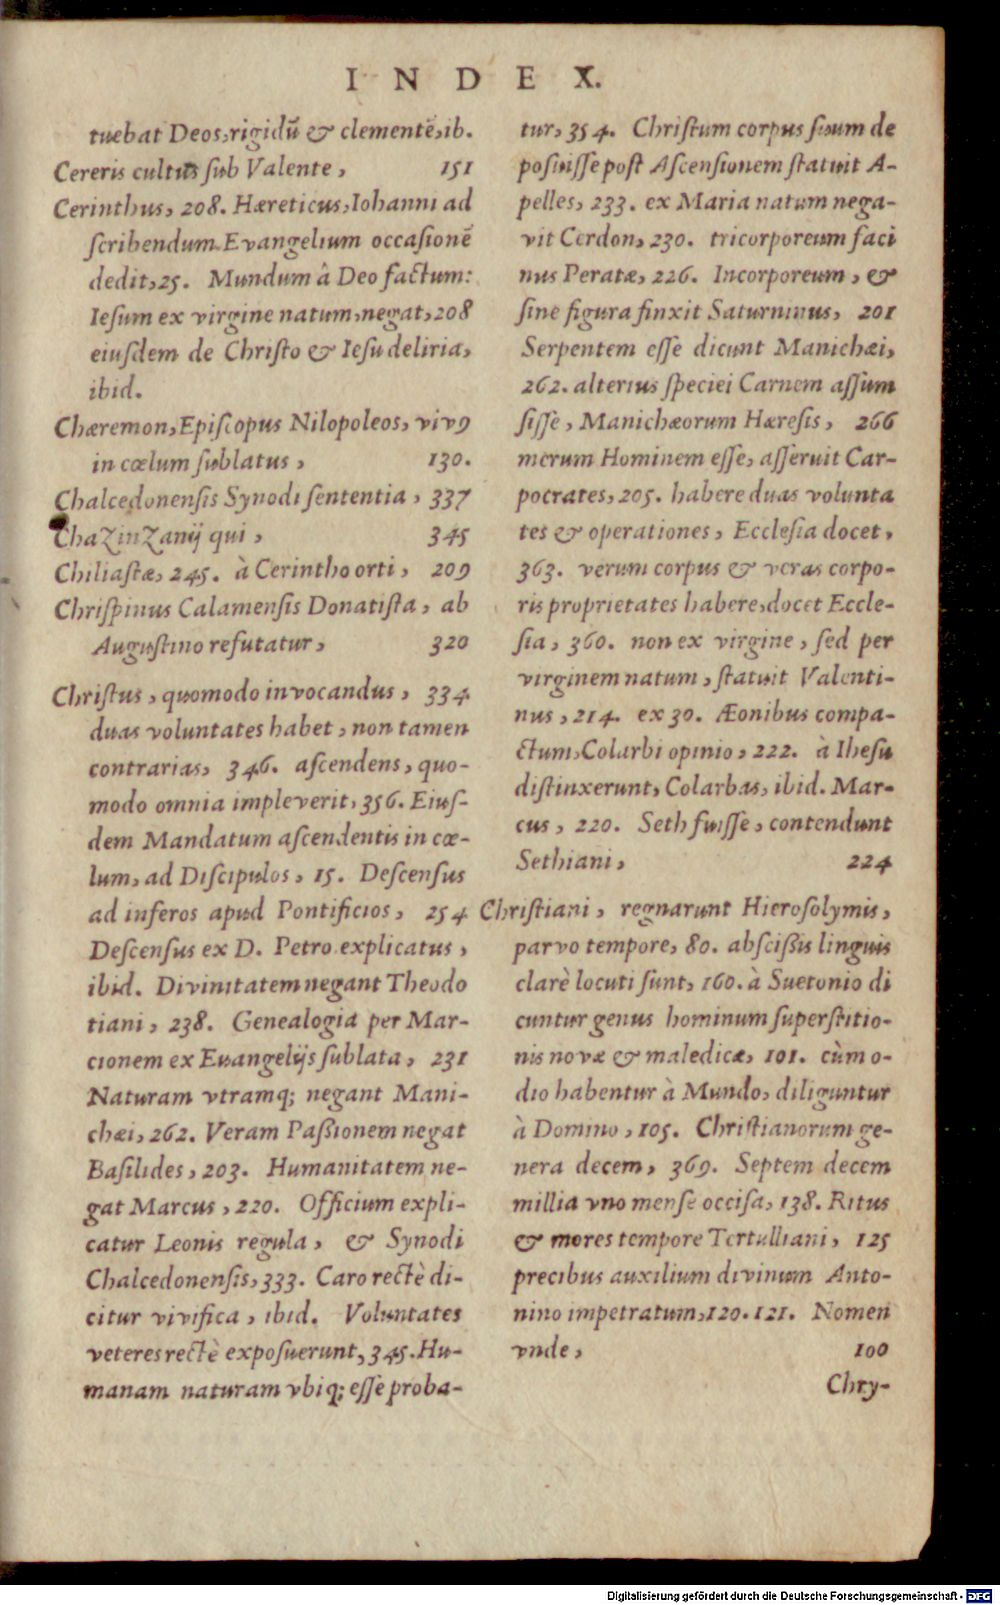 INDEX.
tuebat Deos, rigidū & clementē, ib.
Cereris cultus sub Valente, 151
Cerinthus, 208. Hæreticus, Iohanni ad
scribendum Evangelium occasionē
dedit, 25. Mundum â Deo factum:
Iesum ex virgine natum, negat, 208
eiusdem de Christo & Iesu deliria,
ibid.
Chæremon, Episcopus Nilopoleos, viv9
in cœlum sublatus, 130.
Chalcedonensis Synodi sententia, 337
Chazinzarij qui, 345
Chiliastæ, 245. à Cerintho orti, 209
Chrispinus Calamensis Donatista, ab
Augustino refutatur, 320
Christus, quomodo invocandus, 334
duas voluntates habet, non tamen
contrarias, 346. ascendens, quo-
modo omnia impleverit, 356. Eius-
dem Mandatum ascendentis in cœ-
lum, ad Discipulos, 15. Descensus
ad inferos apud Pontificios, 254
Descensus ex D. Petro explicatus,
ibid. Divinitatem negant Theodo
tiani, 238. Genealogia per Mar-
cionem ex Euangelijs sublata, 231
Naturam vtramq; negant Mani-
chæi, 262. Veram Passionem negat
Basilides, 203. Humanitatem ne-
gat Marcus, 220. Officium expli-
catur Leonis regula, & Synodi
Chalcedonensis, 333. Caro rectè di-
citur vivifica, ibid. Voluntates
veteres rectè exposuerunt, 345. Hu-
manam naturam vbiq; esse proba-
tur, 354. Christum corpus suum de
posuisse post Ascensionem statuit A-
pelles, 233. ex Maria natum nega-
vit Cerdon, 230. tricorporeum faci
nus Peratæ, 226. Incorporeum, &
sine figura finxit Saturninus, 201
Serpentem esse dicunt Manichæi,
262. alterius speciei Carnem assum
sisse, Manichæorum Hæresis, 266
merum Hominem esse, asseruit Car-
pocrates, 205. habere duas volunta
tes & operationes, Ecclesia docet,
363. verum corpus & veras corpo-
ris proprietates habere, docet Eccle-
sia, 360. non ex virgine, sed per
virginem natum, statuit Valenti-
nus, 214. ex 30. Æonibus compa-
ctum, Colarbi opinio, 222. à Ihesu
distinxerunt, Colarbas, ibid. Mar-
cus, 220. Seth fuisse, contendunt
Sethiani, 224
Christiani, regnarunt Hierosolymis,
parvo tempore, 80. abscissis linguis
clarè locuti sunt, 160. à Suetonio di
cuntur genus hominum superstitio-
nis novæ & maledicæ, 101. cùm o-
dio habentur à Mundo, diliguntur
à Domino, 105. Christianorum ge-
nera decem, 369. Septem decem
millia vno mense occisa, 138. Ritus
& mores tempore Tertulliani, 125
precibus auxilium divinum Anto-
nino impetratum, 120. 121. Nomen
vnde, 100
Chry-
Digitalisierung gefördert durch die Deutsche Forschungsgemeinschaft - DFG